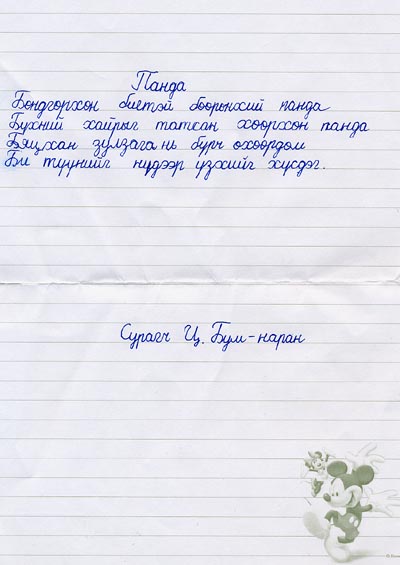 Панда
Бондгорхон биетэй бөөрөнхий панда
Бүхний хайрыг татсан хөөрхөн панда
Бяцхан зулзага нь бүрч өхөөрдөм
Би түүнийг нүдээр үзэхийг хүсдэг.
Сурагч Ц. Бум-наран